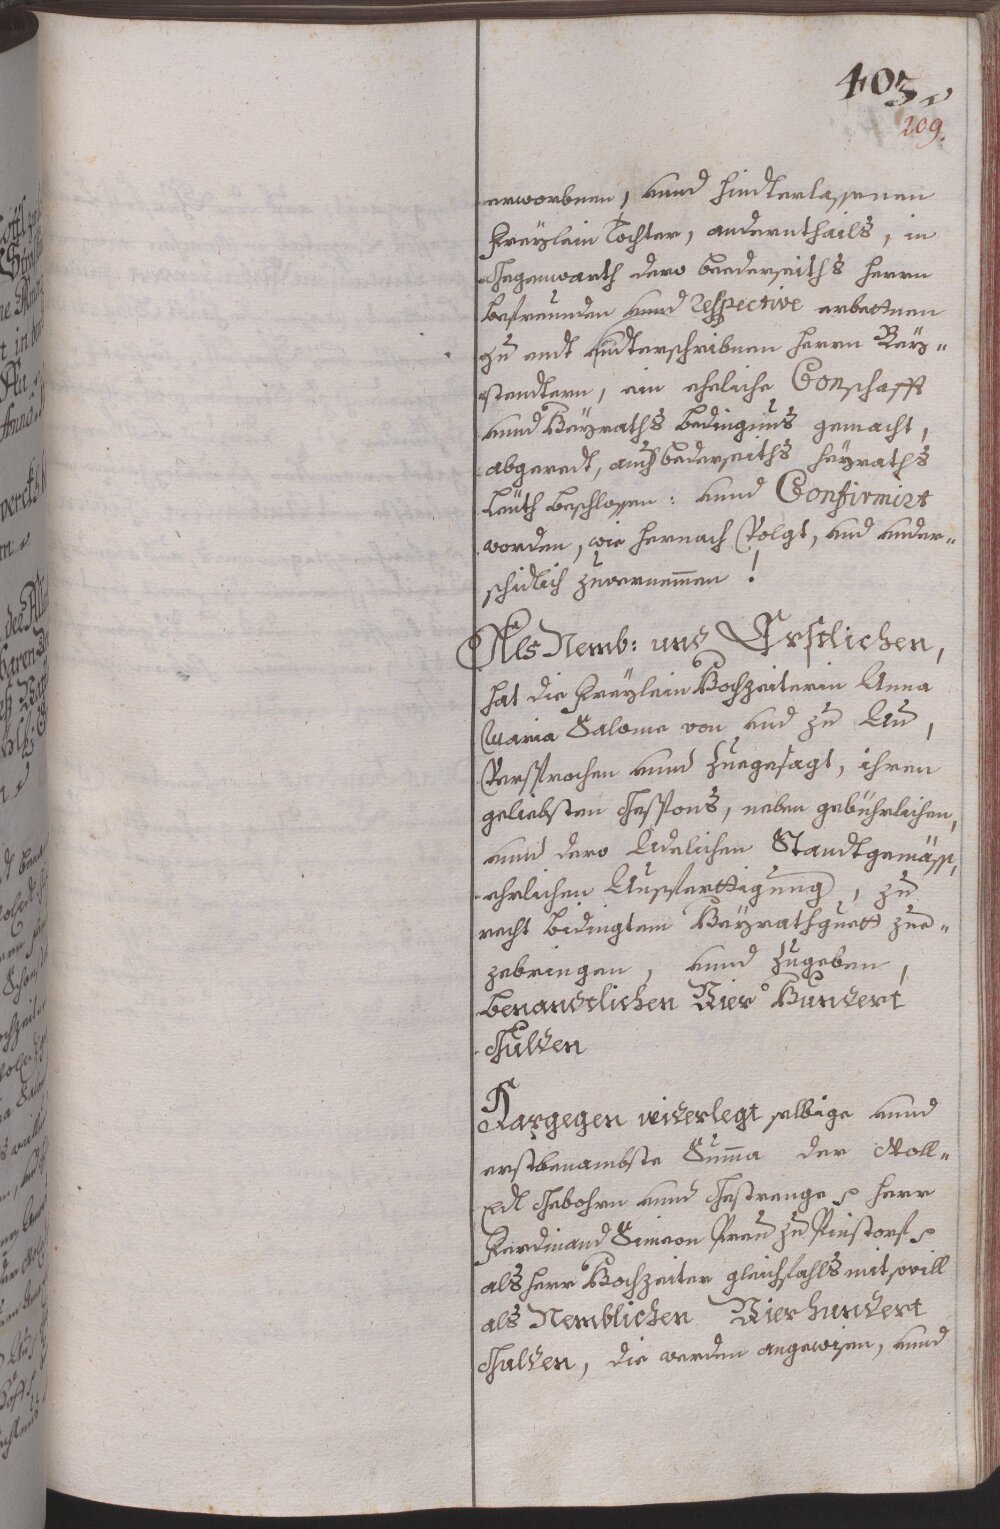 403
209.
erworbnen, unnd hindterlassenen
Freÿlein Tochter, andernthails, in
Gegenwarth dero bederseiths herrn
befreundten unnd respective erbettnen
zu endt undterschribnen herrn Beÿ-
stendtern, ein eheliche Conschafft
unnd Heÿraths bedingnus gemacht,
abgeredt, auch bederseiths heÿraths
Leüth beschlossen: unnd Confirmirt
worden, wie hernach Volgt, und under-
schidlich zuvernemmen!
Als Nemb: und Erstlichen,
hat die Freÿlein Hochzeiterin Anna
Maria Salome von und zu Au,
Versprochen unnd zuegesagt, ihren
geliebsten Gespons, neben gebührlichen,
unnd dero Adelichen Standtgemäss,
ehrlichen Aussferttigung, zu
recht bedingtem Heÿrathguett zue-
zebringen, unnd zugeben,
benandtlichen Vier Hundert
Gulden
Dargegen widerlegt selbige unnd
erstbenambste Summa der Woll-
Edl Gebohrn unnd Gestrenge herr
Ferdinand Simeon Preu zu Pinstorf
als herr Hochzeiter gleichfahls mit sovill
als Nemblichen Vierhundert
Gulden, die werden angewisen, unnd